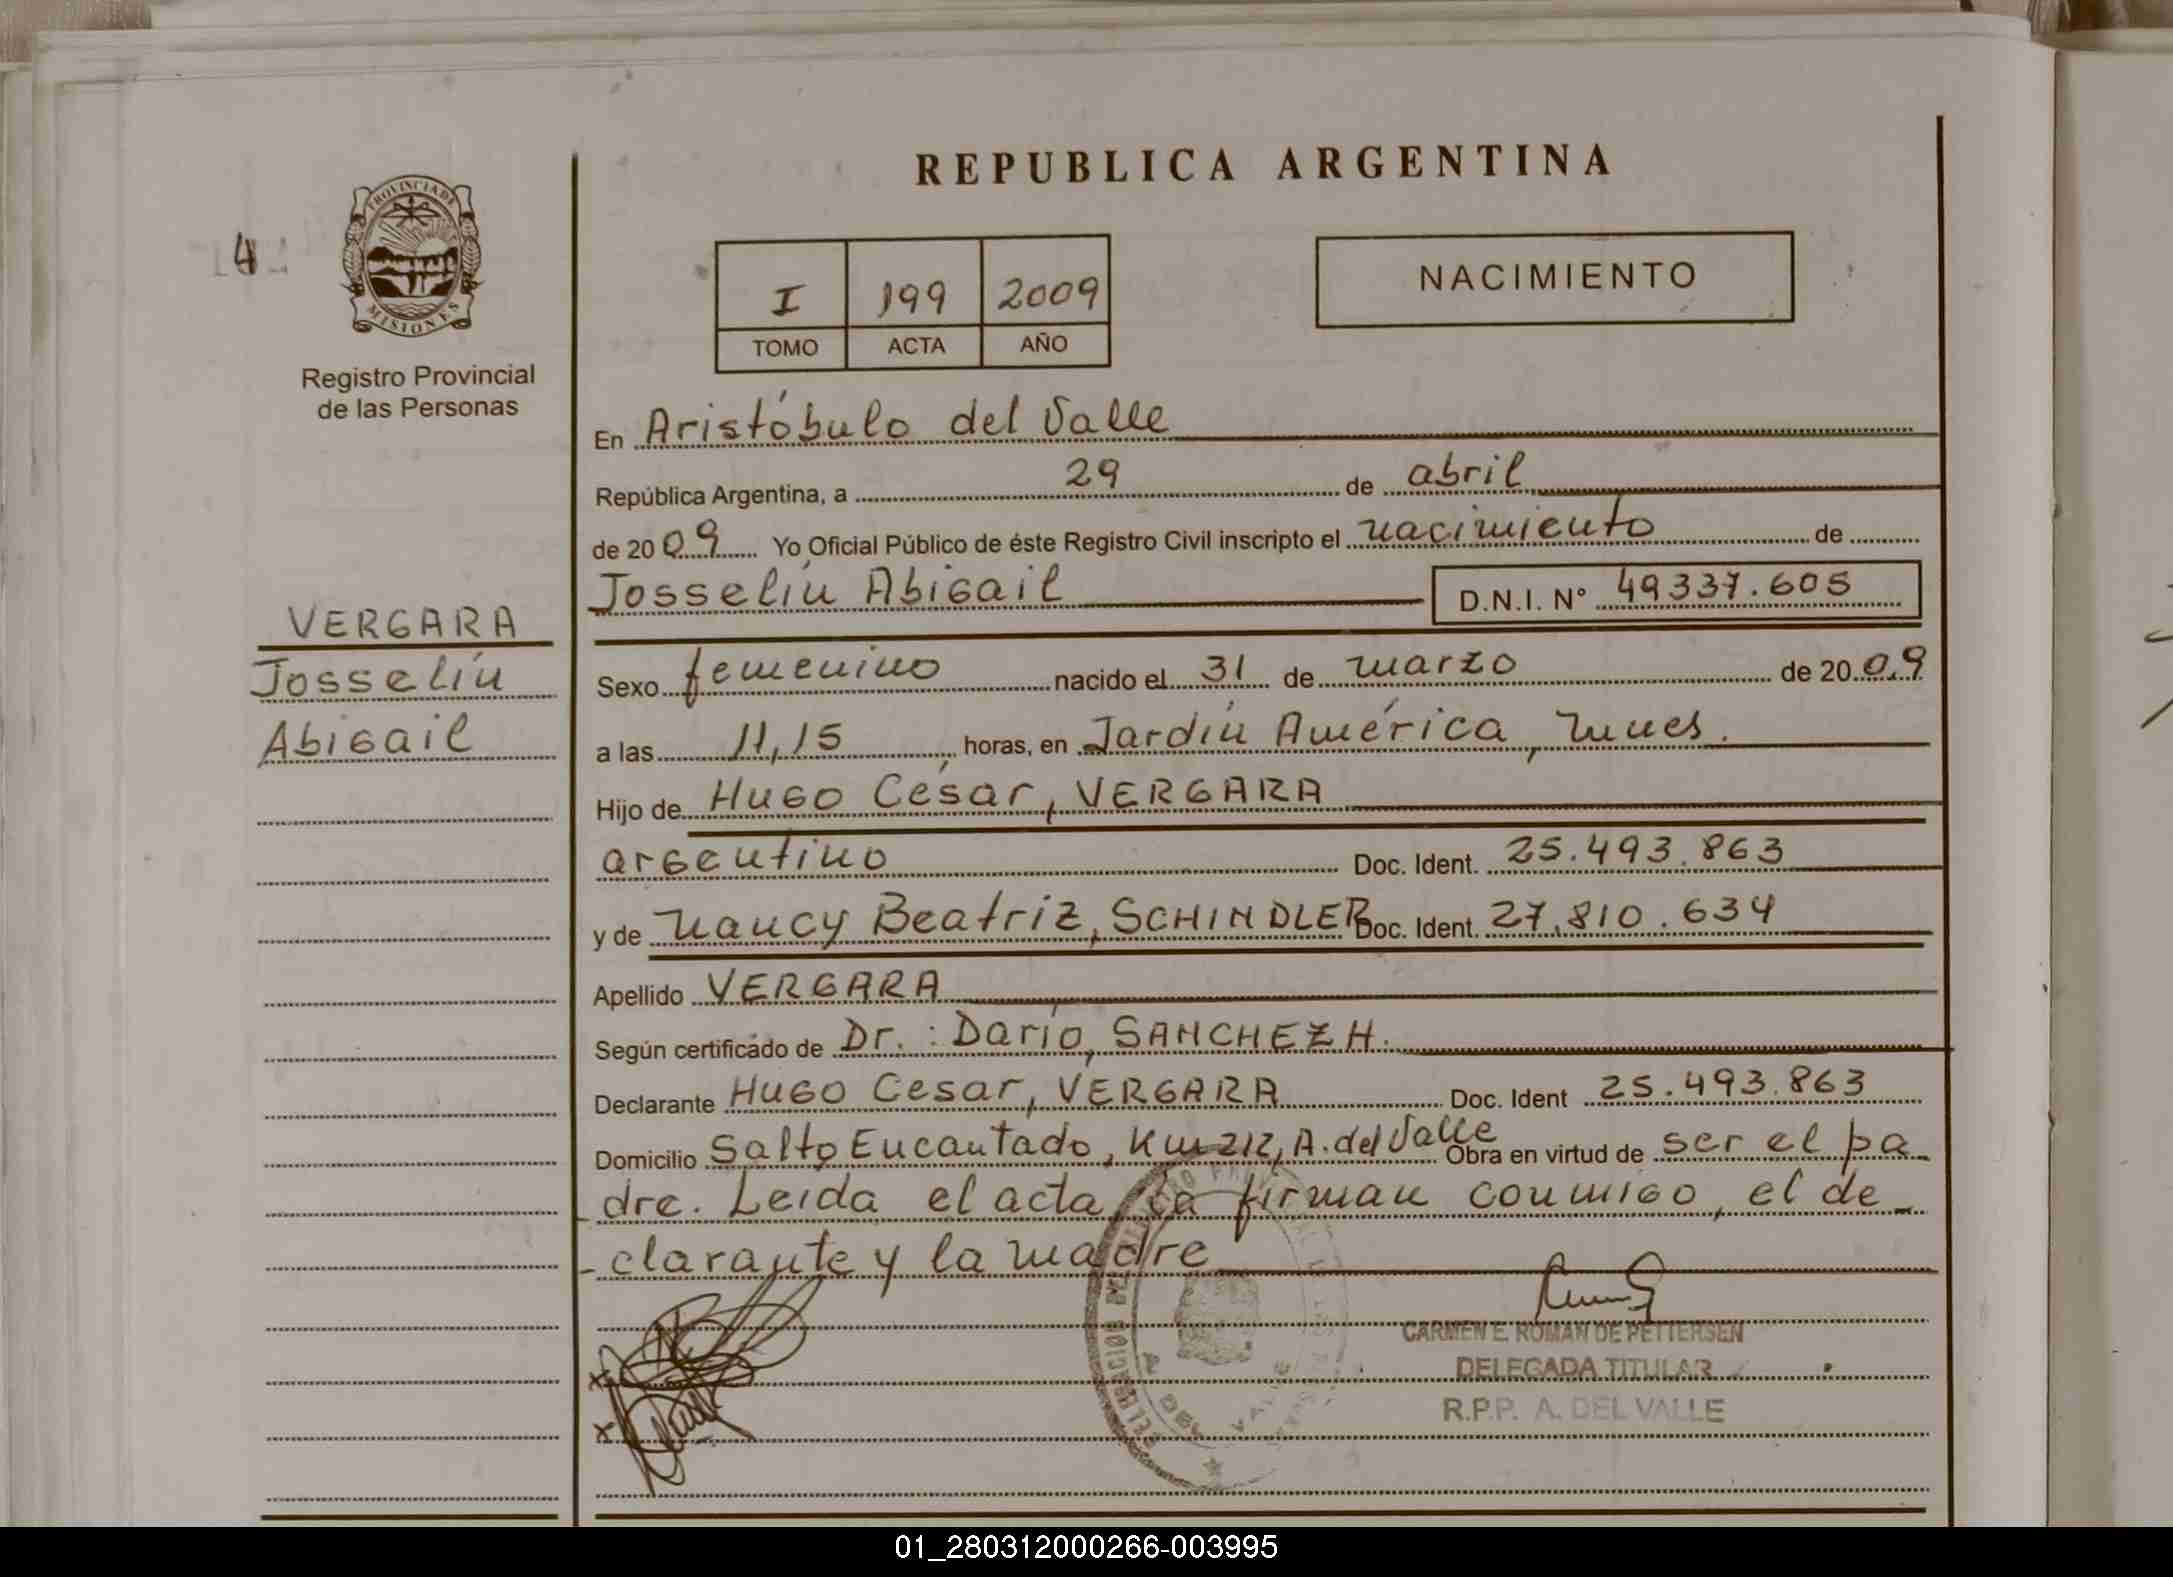 REPUBLICA ARGENTINA
4
PROVINCIA DE
MISIONES
Registro Provincial
de las Personas
I 199 2009
TOMO ACTA AÑO
NACIMIENTO
En Aristóbulo del Valle
República Argentina, a 29 de abril
de 2009 Yo Oficial Público de éste Registro Civil inscripto el nacimiento de
Josselín Abigail D.N.I. N° 49337.605
VERGARA
Josselín
Abigail
Sexo femenino nacido el 31 de marzo de 2009
a las 11,15 horas, en Jardín América, Mnes.
Hijo de Hugo César, VERGARA
argentino Doc. Ident. 25.493.863
y de Nancy Beatriz, SCHINDLER Doc. Ident. 27.810.634
Apellido VERGARA
Según certificado de Dr.: Darío, SANCHEZ H.
Declarante Hugo Cesar, VERGARA Doc. Ident 25.493.863
Domicilio Salto Encantado, Km 212, A. del Valle Obra en virtud de ser el pa_
dre. Leída el acta, la firman conmigo, el de_
_clarante y la madre
CARMEN E. ROMAN DE PETTERSEN
DELEGADA TITULAR
R.P.P. A. DEL VALLE
01_280312000266-003995